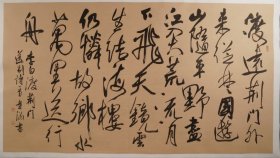 渡遠荆門外
来從楚國遊
山隨平野盡
江入大荒流月
下飛天鏡雲
生结海樓
仍憐故鄉水
萬里送行
舟 李白渡荆門
送别詩